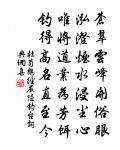 蒼翠雲峰開俗眼
泓澄煙水浸塵心
唯將道業為芳餌
釣得高名直至今
杜荀鶴經嚴陵釣台詞
典網集